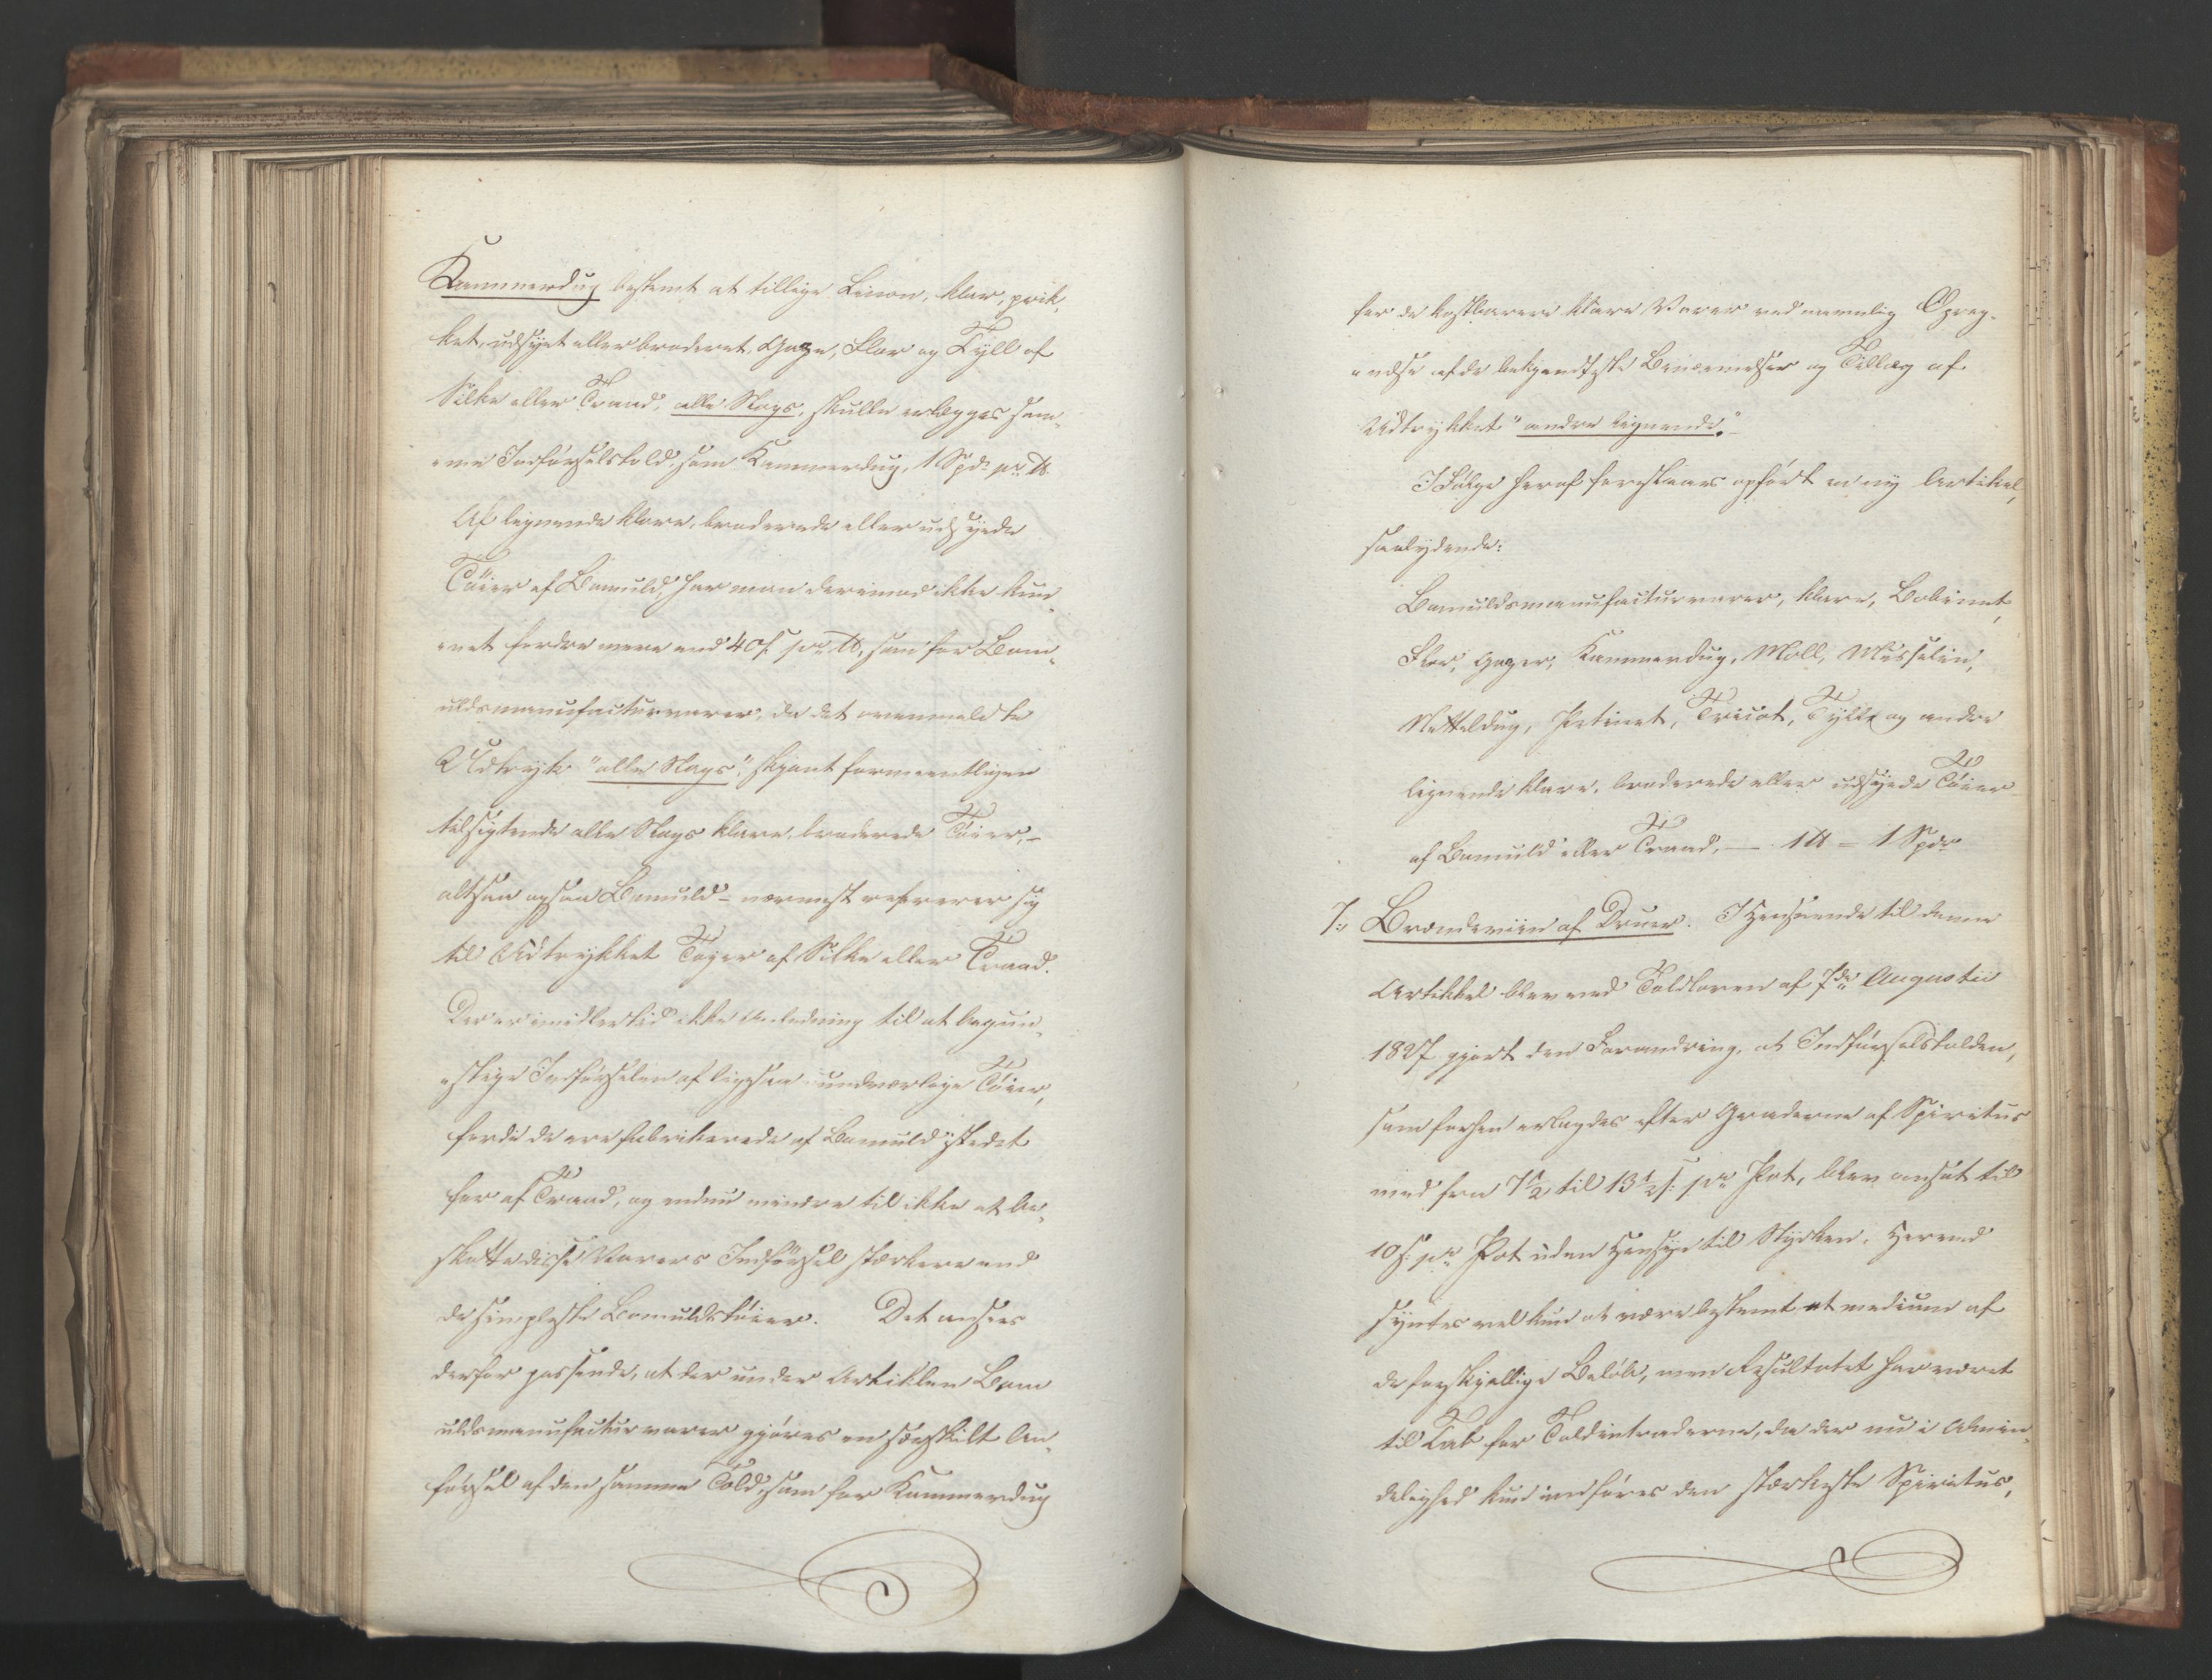 Kammerdug bestemt at tillige Linon, klar, prik-
ket, udsyet eller broderet, Gaze, Flor og Tyll af
Silke eller Traad, alle Slags, skulle erlægges sam-
me Indførselstold, som Kammerdug, 1 Spd. pr. ℔.
Af lignende klare, broderede eller udsyede
Tøier af Bomuld, har man derimod ikke kun-
net fordre mere end 40 s. pr. ℔, som for Bom-
uldsmanufacturvarer, da det ovenmeldte
Udtryk "alle Slags", skjønt formeentligen
tilsigtende alle Slags klare, broderede Tøier, –
altsaa ogsaa Bomuld – nærmest refererer sig
til Udtrykket Tøyer af Silke eller Traad.
Der er imidlertid ikke Anledning til at begun-
stige Indførselen af ligesaa undværlige Tøier,
fordi de ere fabrikerede af Bomuld istedet
for af Traad, og endnu mindre til ikke at be-
skatte disse Varers Indførsel stærkere end
de simpleste Bomuldstøier. Det ansees
derfor passende, at der under Artiklen Bom
uldsmanufacturvarer gjøres en særskilt An-
førsel af den samme Told, som for Kammerdug
for de kostbarere klare Varer ved nemlig Opreg-
nelse af de bekjendteste Benævnelser og Tillæg af
Udtrykket "andre lignende."
I Følge heraf foreslaaes opført en ny Artikel,
saalydende:
Bomuldsmanufacturvarer, klare, Bobinet,
Flor, Gazer, Kammerdug, Moll, Musselin,
Netteldug, Petinet, Tricot, Tyll og andre
lignende klare, broderede eller udsyede Tøier
af Bomuld eller Traad, — 1 ℔ = 1 Spdr
7:, Brændeviin af Druer. I Henseende til denne
Artikkel blev ved Toldloven af 7de Augustii
1827 gjort den Forandring, at Indførselstolden,
som forhen erlagdes efter Graderne af Spiritus
med fra 7½ til 13½ s: pr. Pot, blev ansat til
10 s: pr. Pot uden Hensyn til Styrken. Herved
syntes vel kun at være bestemt et medium af
de forskjellige Beløb, men Resultatet har været
til Tab for Toldintraderne, da der nu i Almin-
delighed kun indføres den stærkeste Spiritus,